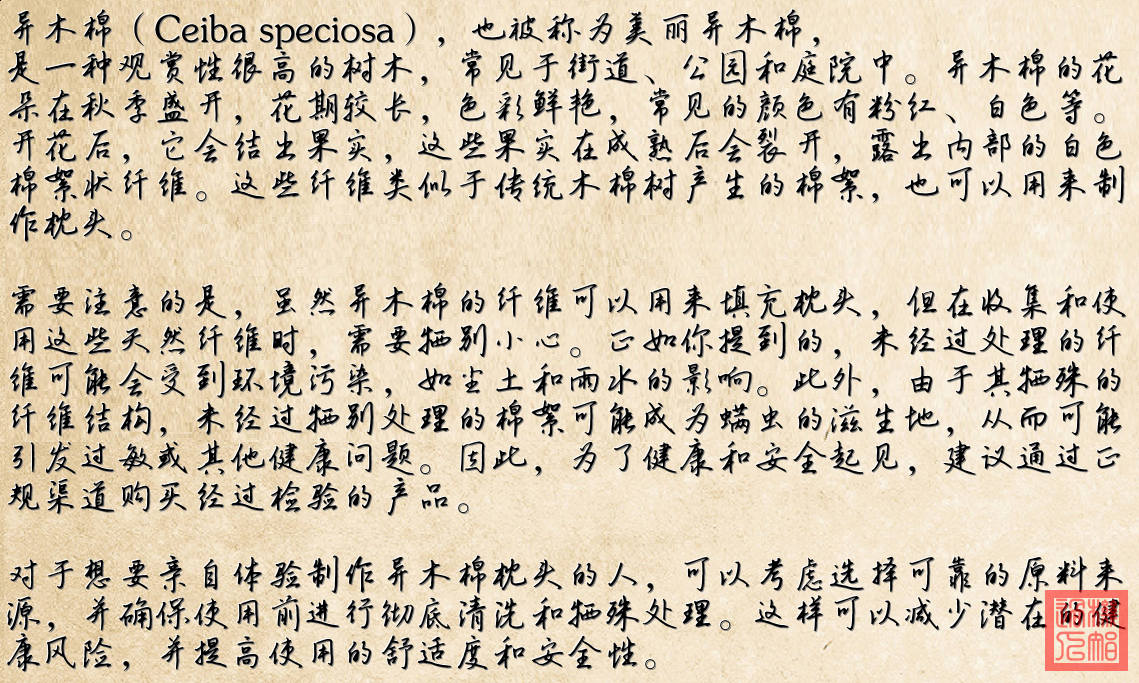 异木棉（Ceiba speciosa），也被称为美丽异木棉，
是一种观赏性很高的树木，常见于街道、公园和庭院中。异木棉的花
朵在秋季盛开，花期较长，色彩鲜艳，常见的颜色有粉红、白色等。
开花后，它会结出果实，这些果实在成熟后会裂开，露出内部的白色
棉絮状纤维。这些纤维类似于传统木棉树产生的棉絮，也可以用来制
作枕头。
需要注意的是，虽然异木棉的纤维可以用来填充枕头，但在收集和使
用这些天然纤维时，需要特别小心。正如你提到的，未经过处理的纤
维可能会受到环境污染，如尘土和雨水的影响。此外，由于其特殊的
纤维结构，未经过特别处理的棉絮可能成为螨虫的滋生地，从而可能
引发过敏或其他健康问题。因此，为了健康和安全起见，建议通过正
规渠道购买经过检验的产品。
对于想要亲自体验制作异木棉枕头的人，可以考虑选择可靠的原料来
源，并确保使用前进行彻底清洗和特殊处理。这样可以减少潜在的健
康风险，并提高使用的舒适度和安全性。